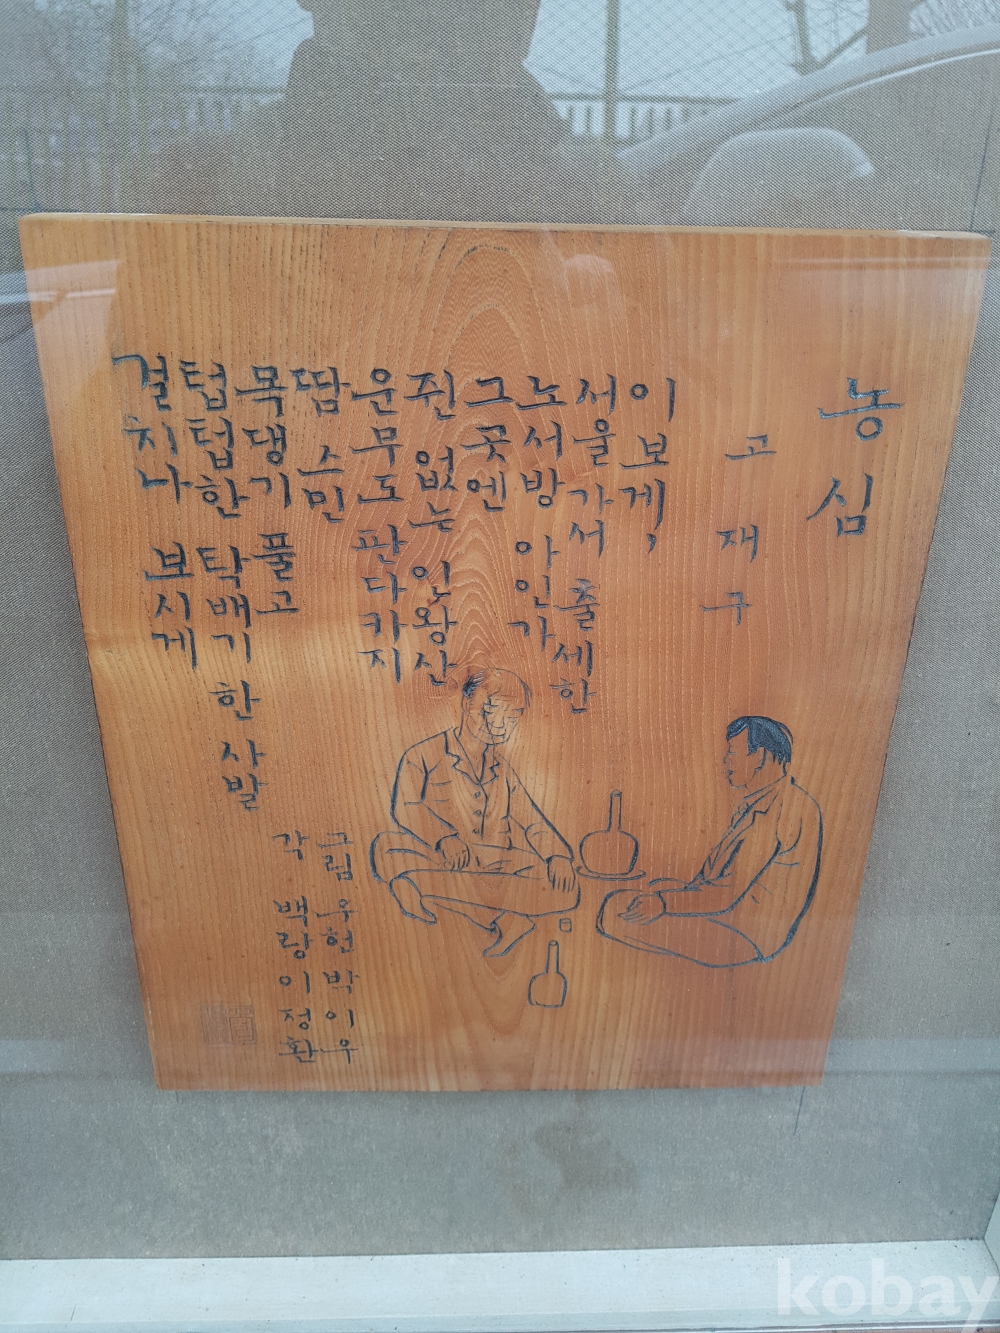 농심
고재구
이보게,
서울 가서 출세한
노서방 아인가
그곳엔
쥔 없는 인왕산
운무도 판다카지
땀 스민
목댕기 풀고
텁텁한 탁배기 한 사발
걸치나 보시게
그림 우헌 박이우
각 백랑 이정환
kobay